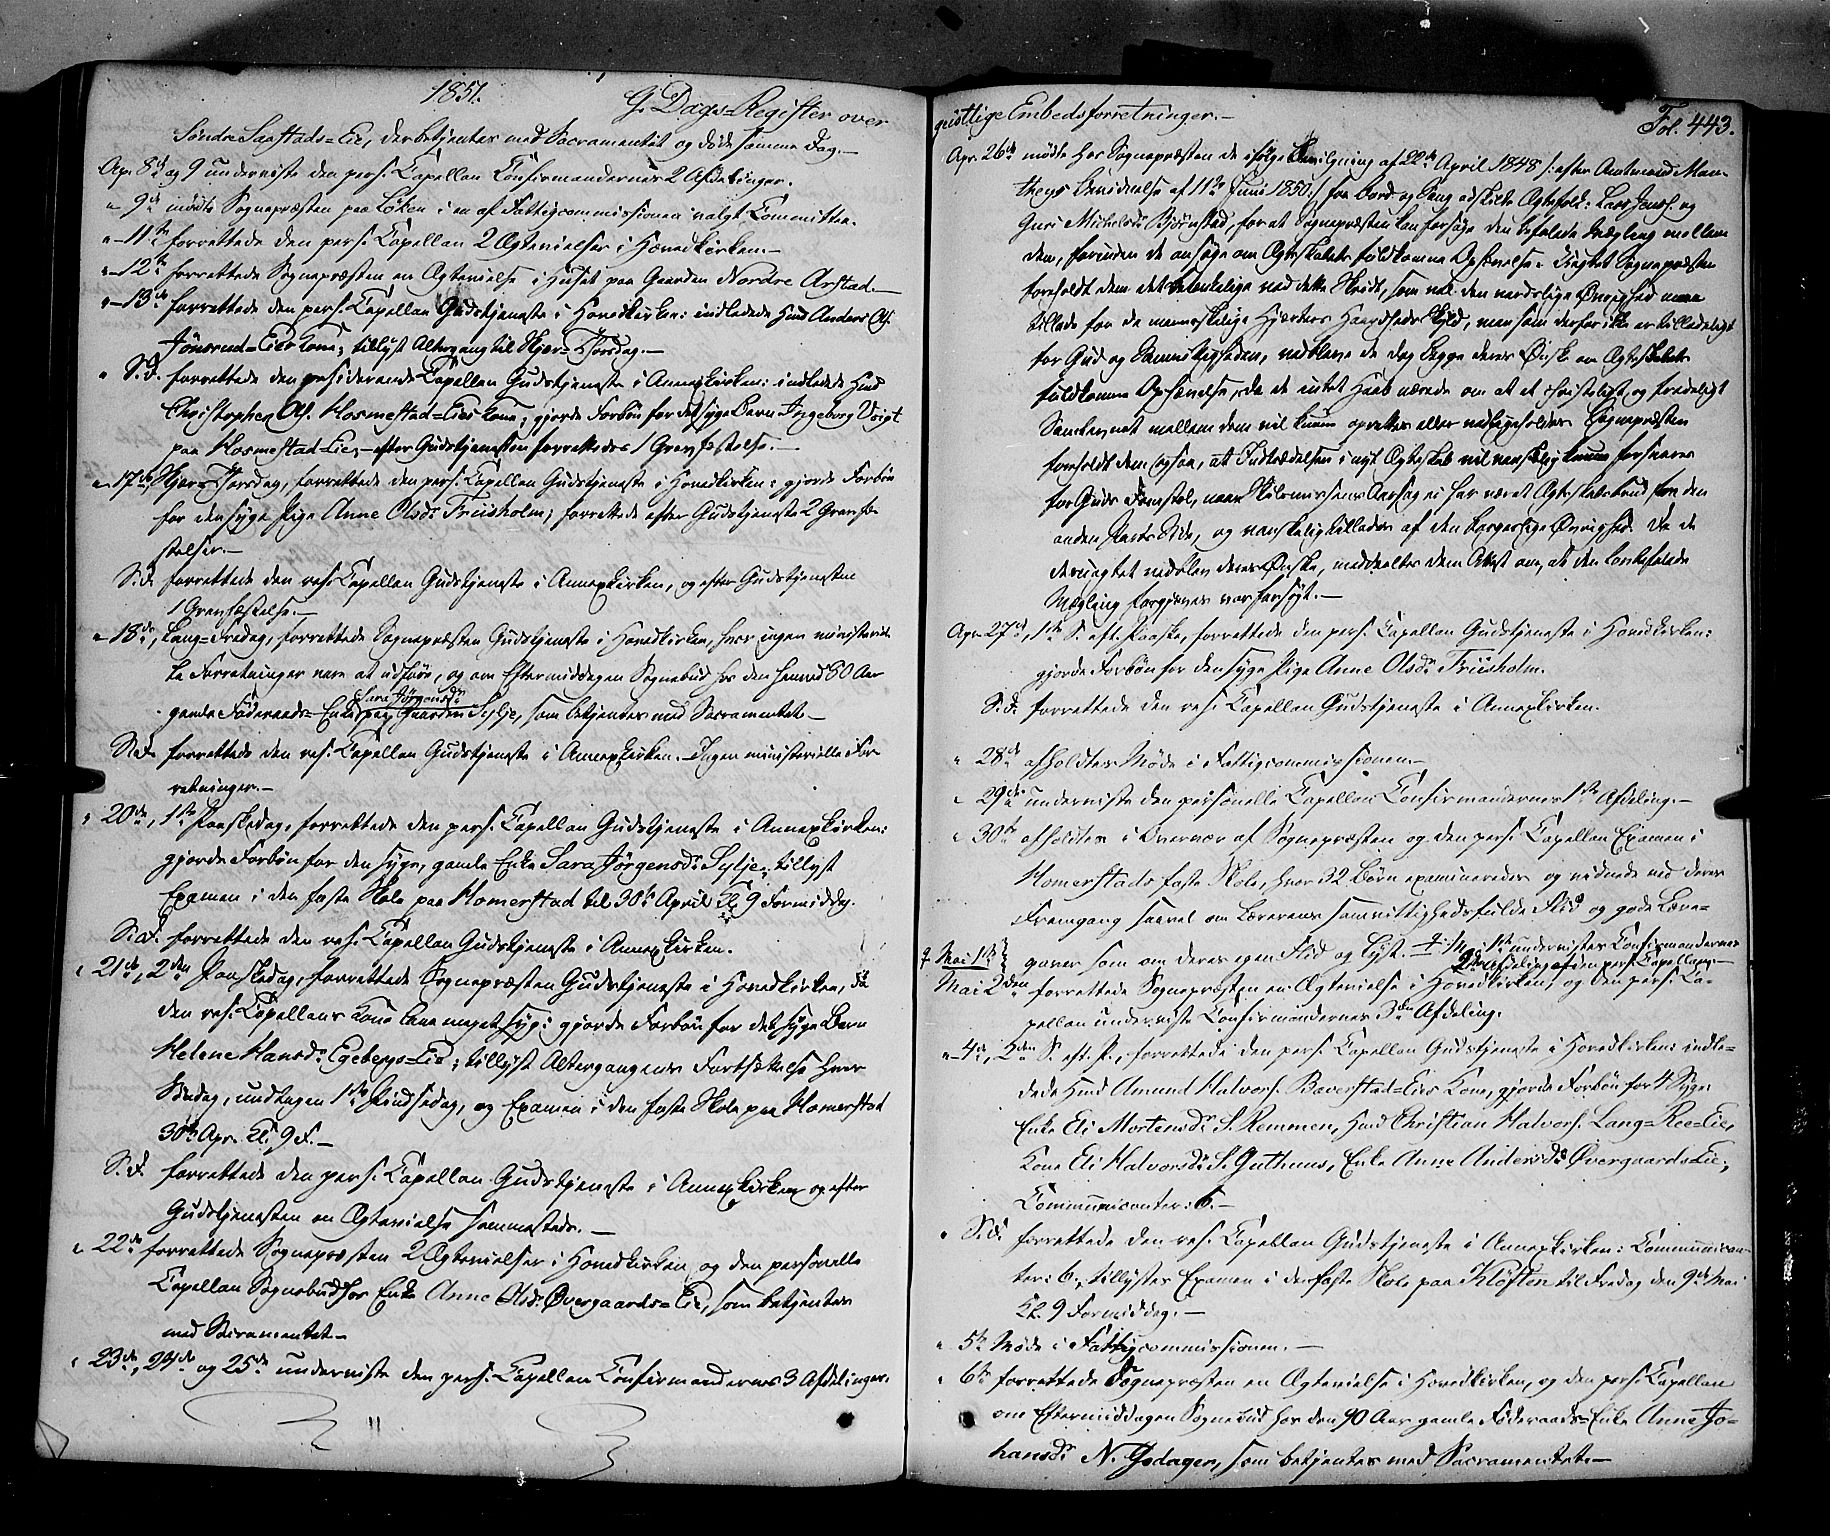 1851.
G. Dags-Register over
Søndre Saxstads-Eie, der betjentes med Sacramentet og døde samme Dag.—
Apr. 8de og 9 underviste den pers. Capellan Confirmandernes 2 Afdelinger.
" — 9de mødte Sognepræsten paa Løken i en af Fattigcommissionen valgt Committee.
" — 11te forrettede den pers. Capellan 2 Ægtevielser i Hovedkirken.—
" — 12te forrettede Sognepræsten en Ægtevielse i Huset paa Gaarden Nordre Arstad.—
" — 13de forrettede den pers. Capellan Gudstjeneste i Hovedkirken: indledede Hmd Anders Ols.
Jønsrud-Eies Kone, tillyst Altergang til Skjær-Torsdag.—
" S.D. forrettede den residerende Capellan Gudstjeneste i Annexkirken: indledede Hmd
Christopher Ols. Hosmestad-Eies Kone, gjorde Forbøn for det syge Barn Ingeborg Voigt
paa Hosmestad-Eie, — efter Gudstjenesten forrettedes 1 Gravfæstelse.—
" — 17de, Skjær-Torsdag, forrettede den pers. Capellan Gudstjeneste i Hovedkirken: gjorde Forbøn
for den syge Pige Anne Olsdr Friisholm; forrettede efter Gudstjeneste 2 Gravfæ-
stelser.—
S.D. forrettede den res. Capellan Gudstjeneste i Annexkirken, og efter Gudstjenesten
1 Gravfæstelse.—
" — 18de, Lang-Fredag, forrettede Sognepræsten Gudstjeneste i Hovedkirken, hvor ingen ministeriel-
le Forretninger vare at udføre, og om Eftermiddagen Sognebud hos den henved 80 Aar
Sara Jørgensdr
gamle Føderaads-Enke paa Gaarden Sylje, som betjentes med Sacramentet.—
S.D. forrettede den res. Capellan Gudstjeneste i Annexkirken. Ingen ministerielle For-
retninger.—
" 20de, 1ste Paaskedag, forrettede den pers. Capellan Gudstjeneste i Annexkirken:
gjorde Forbøn for den syge, gamle Enke Sara Jørgensdr Sylje; tillyst
Examen i den faste Skole paa Homerstad til 30te April Kl. 9 Formiddag.
S.D. forrettede den res. Capellan Gudstjeneste i Annexkirken.
" 21de, 2den Paaskedag, forrettede Sognepræsten Gudstjeneste i Hovedkirken, da
den res. Capellans Kone laae meget syg: gjorde Forbøn for det syge Barn
Helene Hansdr Egebergs-Eie; tillyst Altergangens Fortsættelse hver
Søndag, undtagen 1ste Pindsedag, og Examen i den faste Skole paa Homerstad
30te Apr. Kl. 9 F.—
S.D. forrettede den pers. Capellan Gudstjeneste i Annexkirken og efter
Gudstjenesten en Ægtevielse sammesteds.—
" 22de forrettede Sognepræsten 2 Ægtevielser i Hovedkirken og den personelle
Capellan Sognebud hos Enke Anne Olsdr Øvergaards-Eie, som betjentes
med Sacramentet.—
" 23de, 24de og 25de underviste den pers. Capellan Confirmandernes 3 Afdelinger.
geistlige Embedsforretninger.—
Fol. 443.
Apr. 26de mødte hos Sognepræsten de ifølge Bevilgning af 22de April 1848 /: efter Amtmand Man-
theys Skrivelse af 11te Juni 1850 :/ fra Bord og Seng adskilte Ægtefolk: Lars Jens. og
Guri Michelsdr Bjørnstad, for at Sognepræsten kan forsøge den befalede Mægling mellem
dem, forinden de ansøge om Ægteskabets fuldkomne Ophævelse. Uagtet Sognepræsten
foreholdt dem det betænkelige ved dette Skridt, som vel den verdslige Øvrighed maa
tillade for de menneskelige Hjerters Haardheds Skyld, men som derfor ikke er tilladeligt
for Gud og Samvittigheden, vedbleve de dog begge deres Ønske om Ægteskabets
fuldkomne Ophævelse, da de intet Haab nærede om at et christeligt og fredeligt
Samlevnet mellem dem vil kunne oprettes eller vedligeholdes. Sognepræsten
foreholdt dem ogsaa, at Indtrædelsen i nyt Ægteskab vil vanskelig kunne forsvares
for Guds Domstol, naar Skilsmissens Aarsag ei har været Ægteskabsbrud fra den
anden Parts Side, og vanskelig tillades af den borgerlige Øvrighed. Da de
desuagtet vedblev deres Ønske, meddeeltes dem Attest om, at den lovbefalede
Mægling forgjæves var forsøgt.—
Apr. 27de, 1ste S. eft. Paaske, forrettede den pers. Capellan Gudstjeneste i Hovedkirken:
gjorde Forbøn for den syge Pige Anne Olsdr Friisholm.
S.D. forrettede den res. Capellan Gudstjeneste i Annexkirken.
" 28de afholdtes Møde i Fattigcommissionen.—
" 29de underviste den personelle Capellan Confirmandernes 1ste Afdeling.—
" 30te afholdtes i Overvær af Sognepræsten og den pers. Capellan Examen i
Homerstads faste Skole, hvor 32 Børn examineredes og vidnede ved deres
Fremgang saavel om Lærerens samvittighedsfulde Flid og gode Læren-
gaver som om deres egen Flid og Lyst. + Mai 1ste underviste Confirmandernes
+ Mai 1ste
2den Afdeling af den pers. Capellan.—
Mai 2den forrettede Sognepræsten en Ægtevielse i Hovedkirken, og den pers. Ca-
pellan underviste Confirmandernes 3die Afdeling.
" — 4de, 2den S. eft. P., forrettede den pers. Capellan Gudstjeneste i Hovedkirken: indle-
dede Hmd Amund Halvors. Baverstad-Eies Kone, gjorde Forbøn for 4 Syge:
Enke Eli Mortensdr S. Remmen, Hmd Christian Halvors. Lang-Ree-Eie,
Kone Eli Halvorsdr S. Guthuus, Enke Anne Andersdr Øvergaards-Eie;
Communicanter: 6.—
" S.D. forrettede den res. Capellan Gudstjeneste i Annexkirken: Communican-
ter: 6; tillystes Examen i den faste Skole paa Kløften til Fredag den 9de Mai
Kl. 9 Formiddag.—
" 5te Møde i Fattigcommissionen.—
" 6te forrettede Sognepræsten en Ægtevielse i Hovedkirken, og den pers. Capellan
om Eftermiddagen Sognebud hos den 90 Aar gamle Føderaads-Enke Anne Jo-
hansdr N. Gjedager, som betjentes med Sacramentet.—